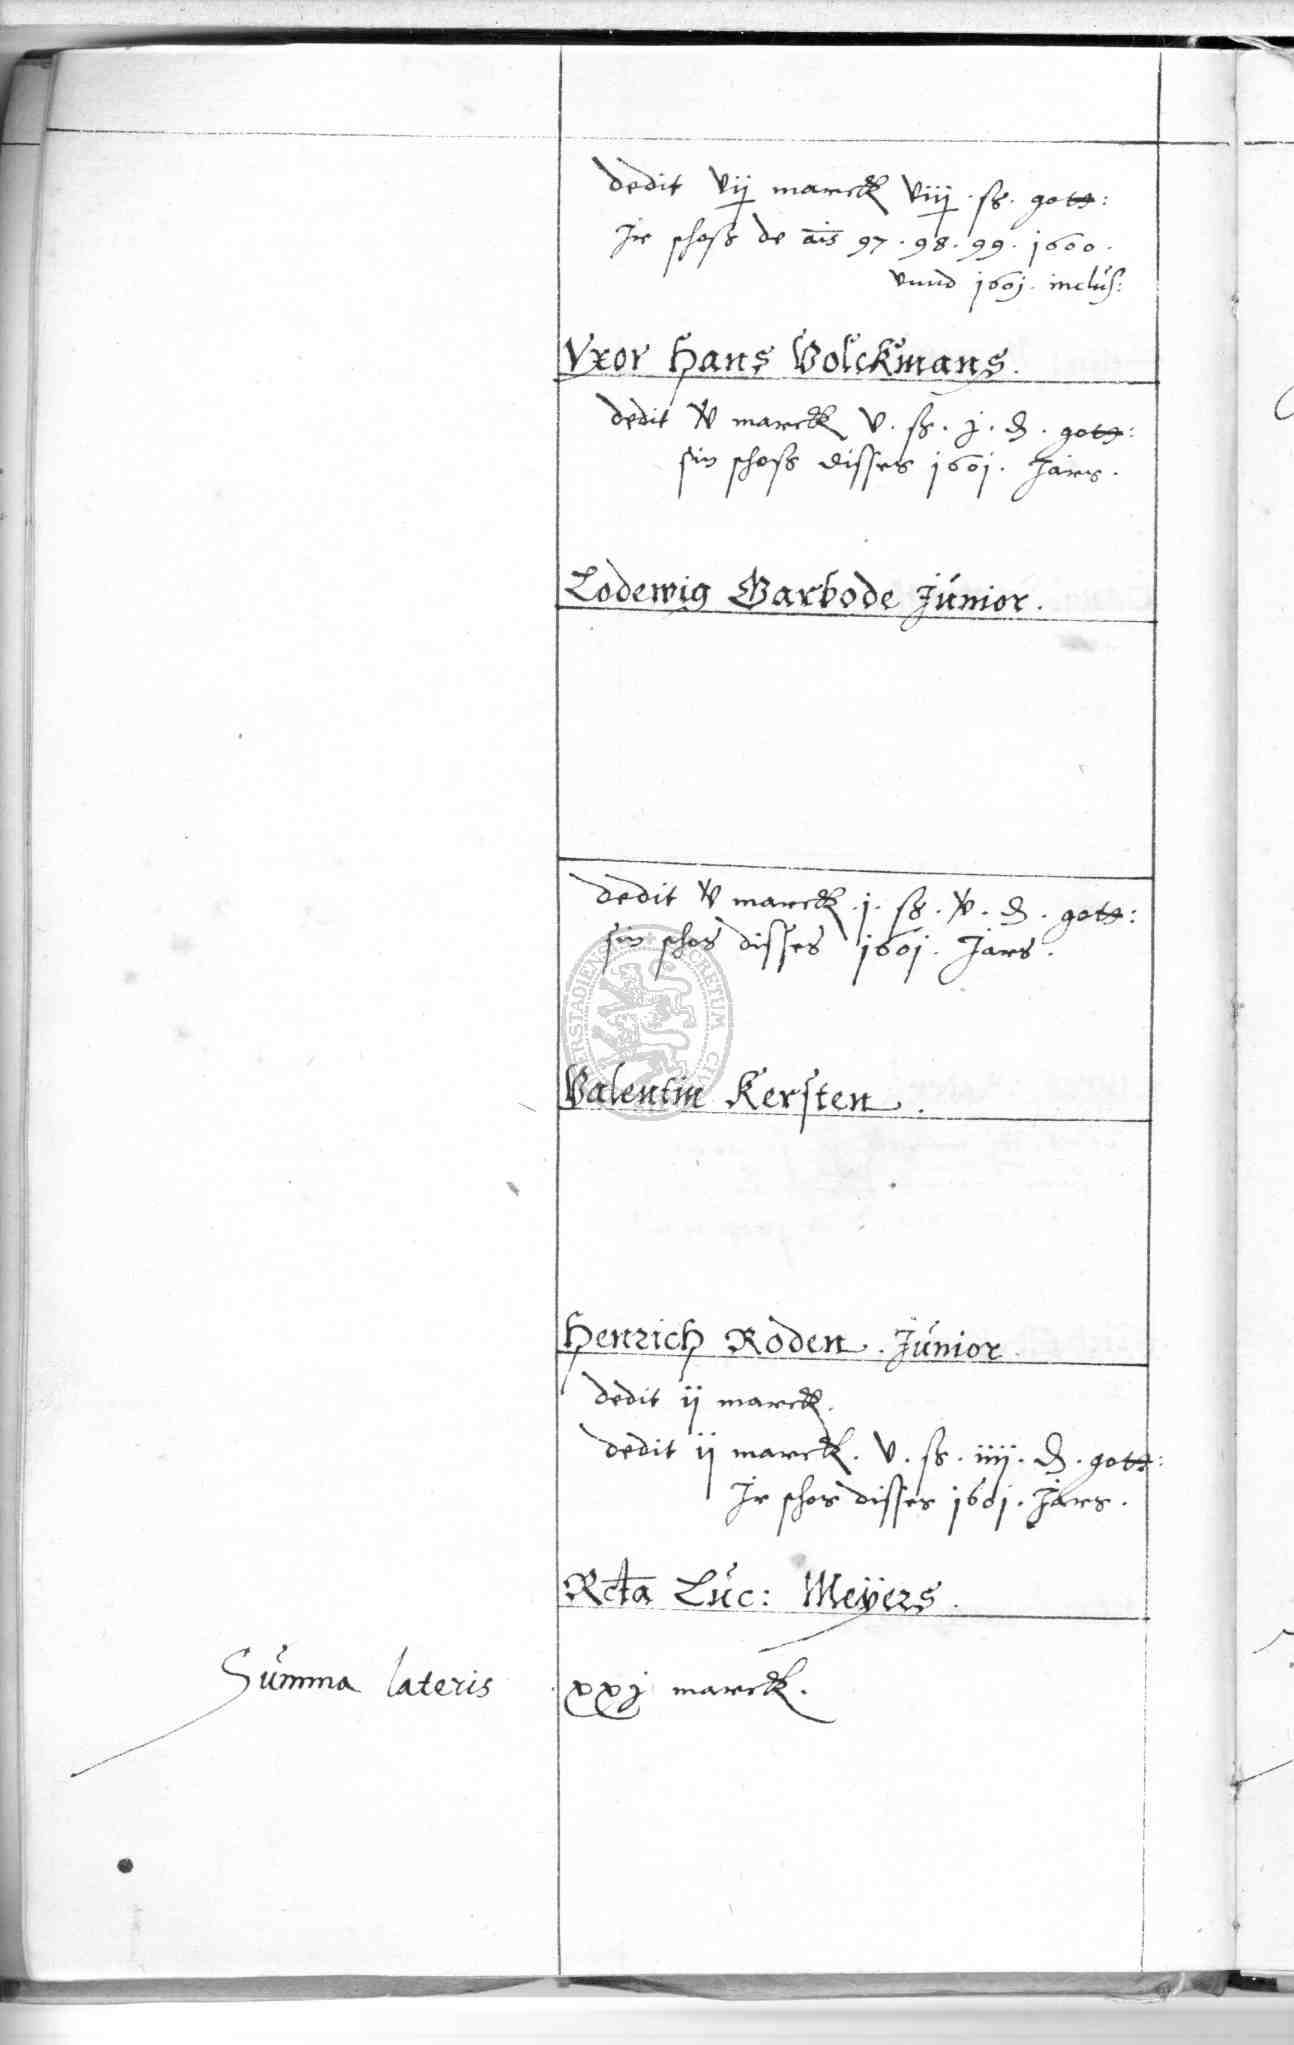 dedit vij marck viij. ß. gott:
Ir schoß de ais 97. 98. 99. 1600.
vnnd 1601. inclus:
Vxor Hans Volckmans.
dedit v marck v. ß. j. d. gott:
sin schoß disses 1601. Jars.
Lodewig Garbode Junior.
dedit v marck .j. ß. v. d. gott:
sin schos disses 1601. Jars.
Valentin Kersten.
Henrich Roden. Junior
dedit ij marck.
dedit ij marck. v. ß. iiij. d. gott:
Ir schos disses 1601. Jars.
Rcta Luc: Meÿers.
Summa lateris xxj marck.